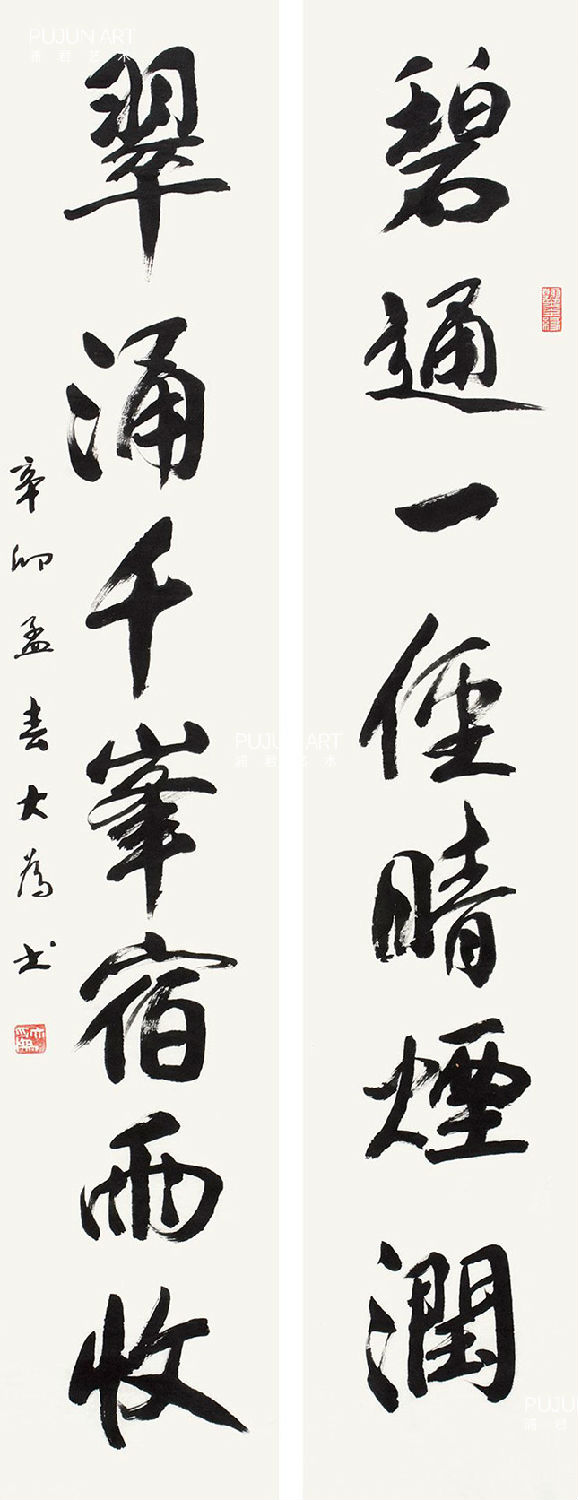 碧通一徑晴煙潤
翠涌千峯宿雨收
辛卯孟春大為书
PUJUN ART
浦君艺术
PUJUN ART
浦君艺术
PUJUN
浦君艺